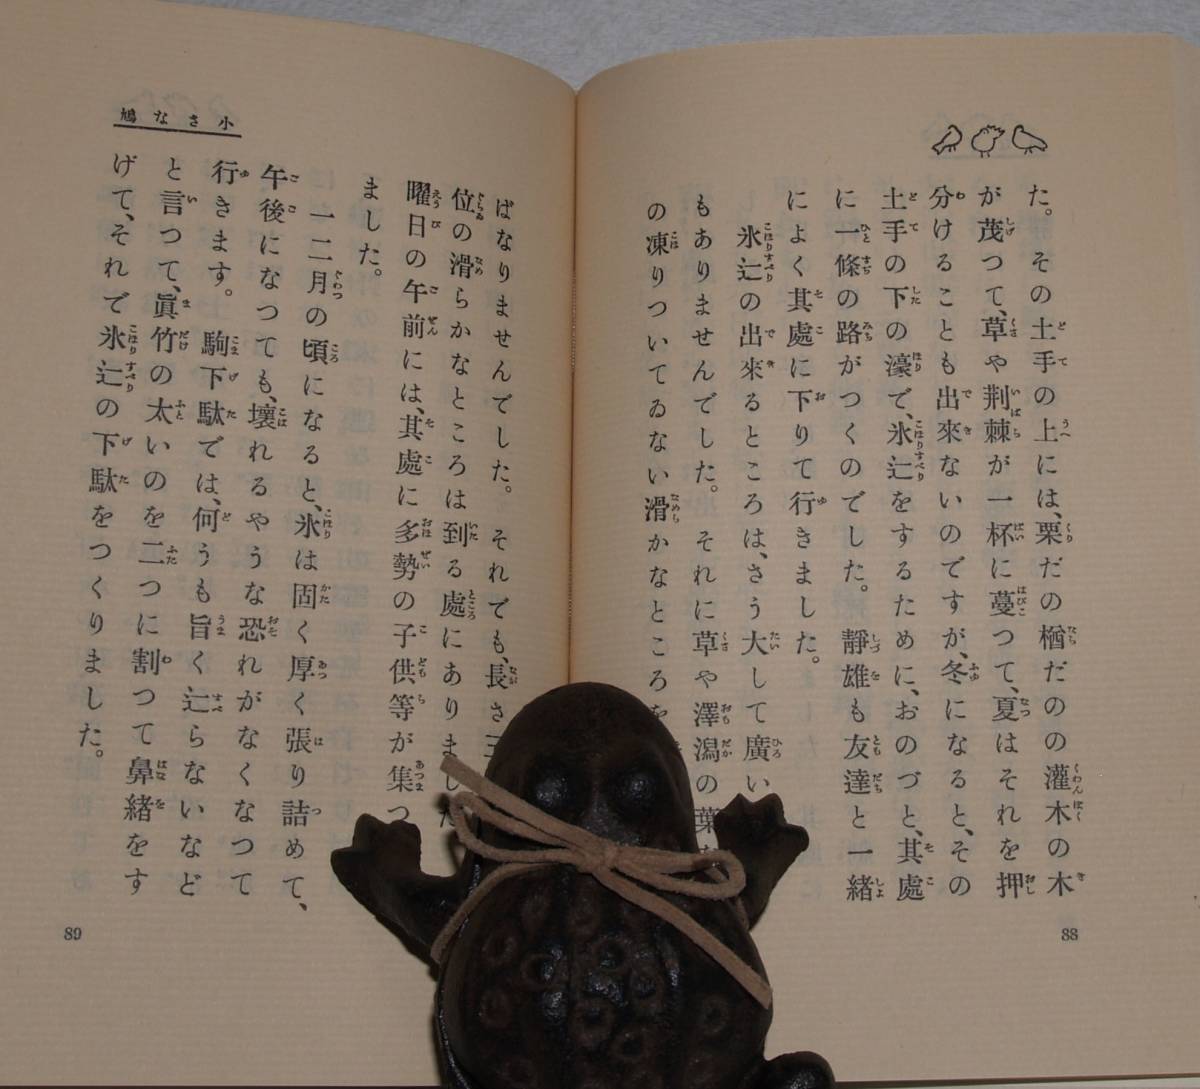 た。その土手の上には、栗だの楢だのの灌木の木
が茂つて、草や荆棘が一杯に蔓つて、夏はそれを押
分けることも出來ないのですが、冬になると、その
土手の下の濠で、氷辷をするために、おのづと、其處
に一條の路がつくのでした。靜雄も友達と一緒
によく其處に下りて行きました。
氷辷の出來るところは、さう大して廣い
もありませんでした。それに草や澤潟の葉
の凍りついてゐない滑かなところを
88
小さな鳩
ばなりませんでした。それでも、長さ三
位の滑らかなところは到る處にありました
曜日の午前には、其處に多勢の子供等が集つ
ました。
一二月の頃になると、氷は固く厚く張り詰めて、
午後になつても、壞れるやうな恐れがなくなつて
行きます。駒下駄では、何うも旨く辷らないなど
と言つて、眞竹の太いのを二つに割つて鼻緒をす
げて、それで氷辷の下駄をつくりました。
89